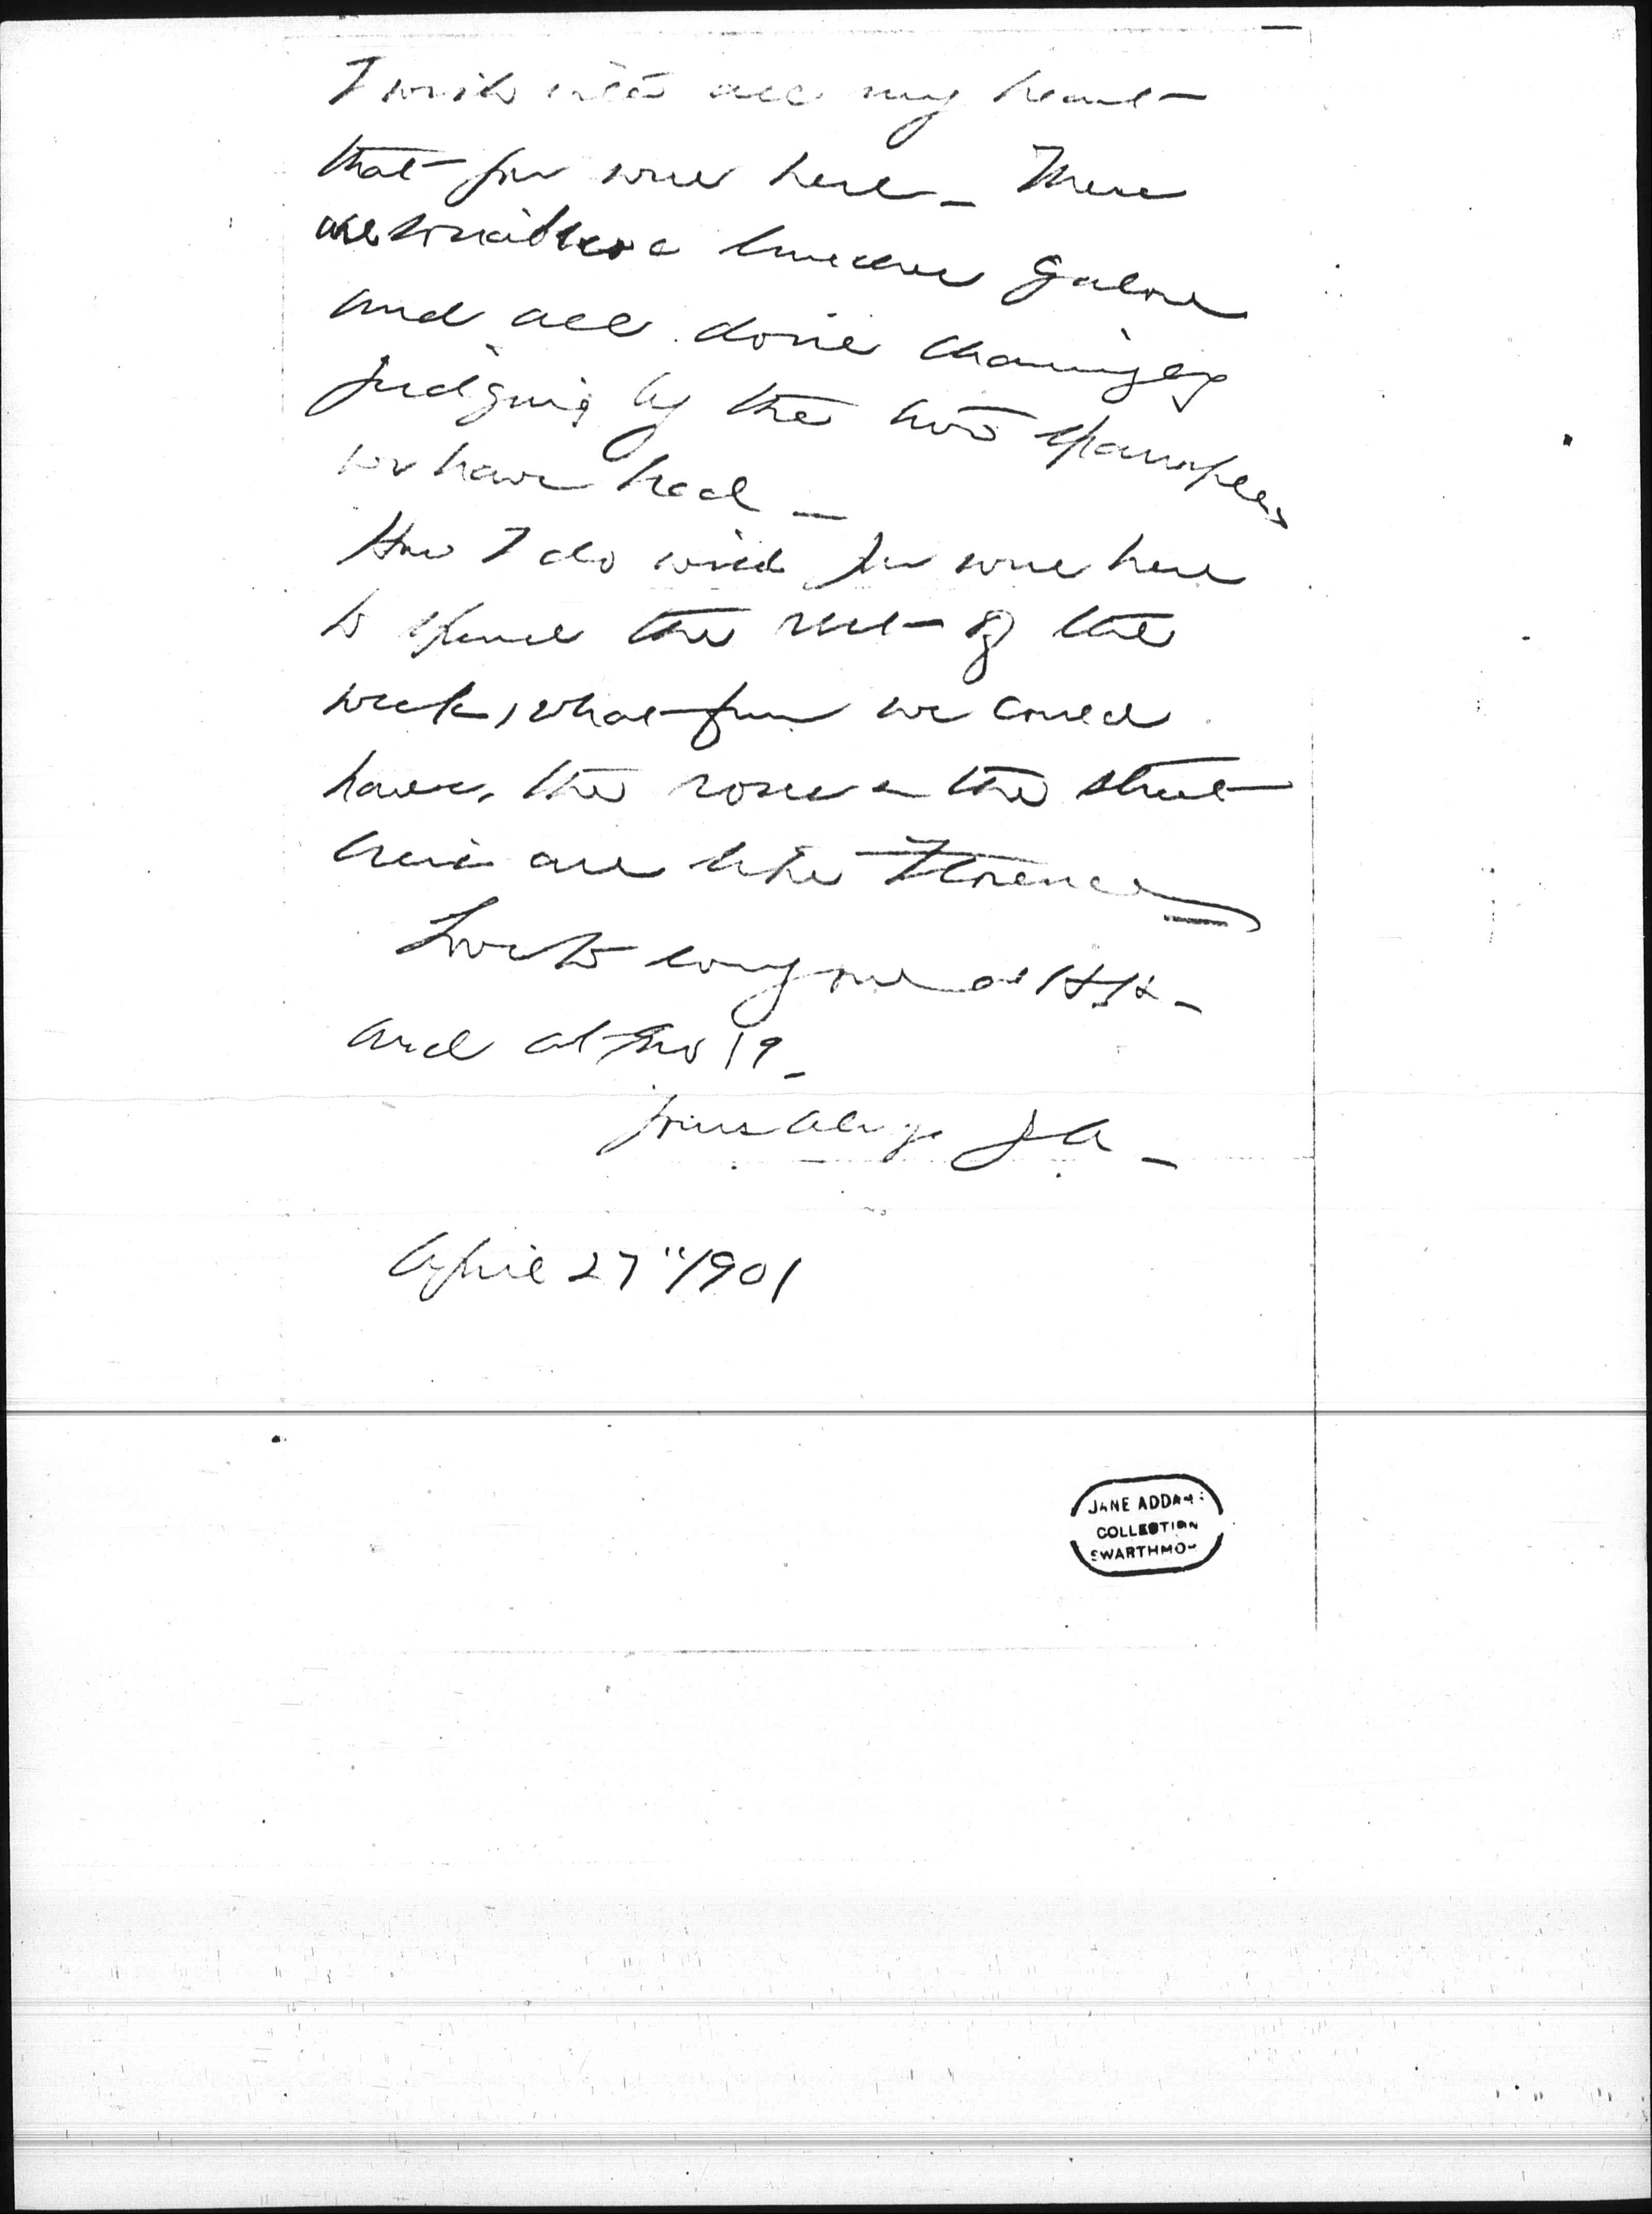 I wish with all my heart
that you were here – There
are smaller luncheons galore
and all done charmingly
judging by the two samples
we have had –
How I do wish you were here
to spend the rest of the
week, what fun we could
have, the roses in the street
here are like Florence
Love to every one at H.H. –
and at No 19 –
Yours always JA –
April 27" 1901
JANE ADDAMS
COLLECTION
SWARTHMO